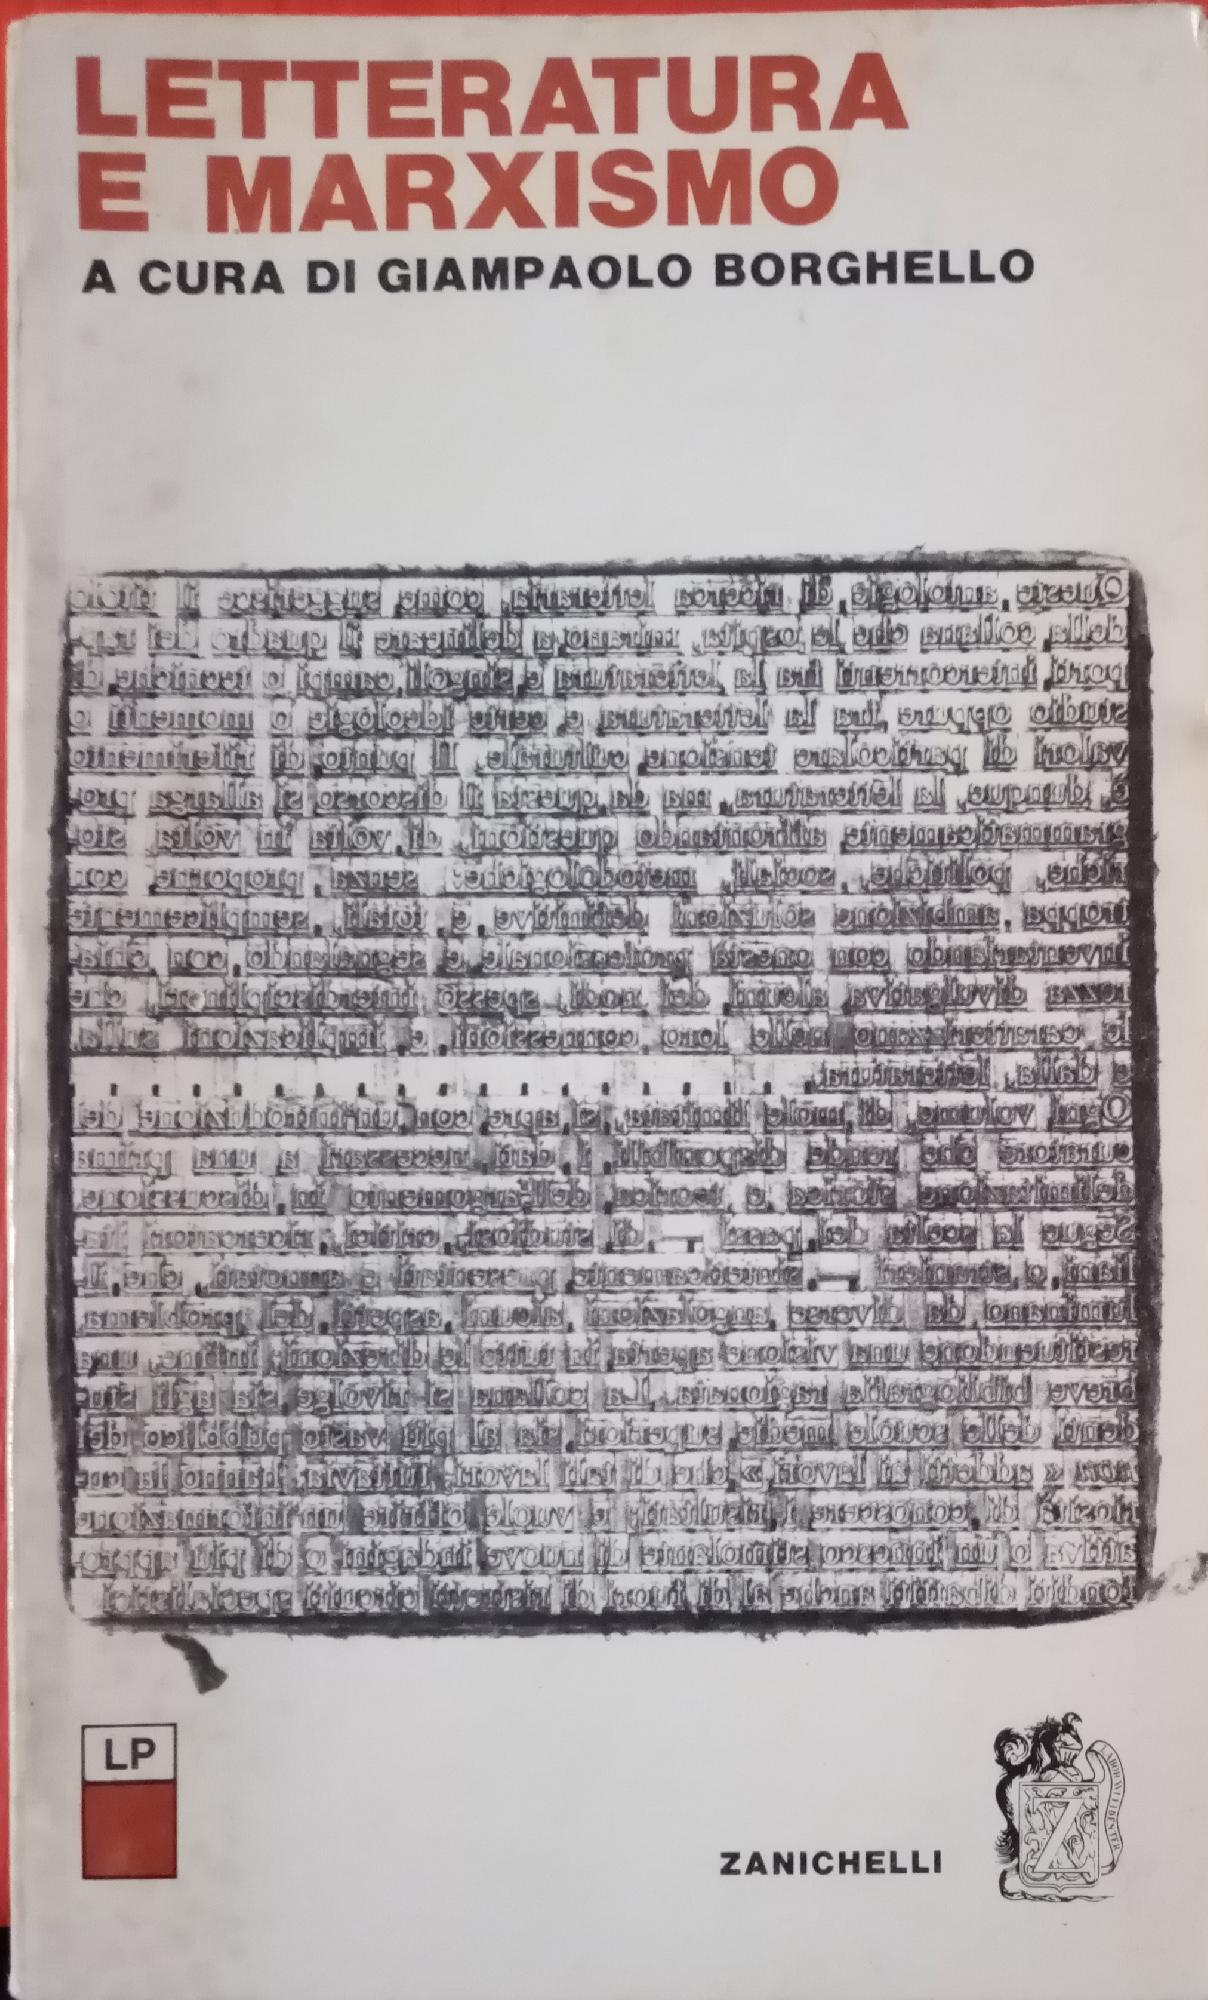 LETTERATURA
E MARXISMO
A CURA DI GIAMPAOLO BORGHELLO
Queste antologie di ricerca letteraria, come suggerisce il titolo
della collana che le ospita, mirano a delineare il quadro dei rap-
porti intercorrenti fra la letteratura e singoli campi o tecniche di
studio oppure fra la letteratura e certe ideologie o momenti o
valori di particolare tensione culturale. Il punto di riferimento
è, dunque, la letteratura, ma da questa il discorso si allarga pro-
grammaticamente affrontando questioni, di volta in volta, sto-
riche, politiche, sociali, metodologiche: senza proporne con
troppa ambizione soluzioni definitive e totali, semplicemente
inventariando con onestà professionale e segnalando con chia-
rezza divulgativa alcuni dei nodi, spesso interdisciplinari, che
le caratterizzano nelle loro connessioni e implicazioni sulla
e dalla letteratura.
Ogni volume, di mole limitata, si apre con un'introduzione del
curatore che rende disponibili i dati necessari a una prima
delimitazione storica e teorica dell'argomento in discussione.
Segue la scelta dei passi — di studiosi, critici, ricercatori ita-
liani o stranieri — sinteticamente presentati e annotati, che il-
luminano da diverse angolazioni alcuni aspetti del problema
restituendone una visione aperta in tutte le direzioni; infine, una
breve bibliografia ragionata. La collana si rivolge sia agli stu-
denti delle scuole medie superiori sia al più vasto pubblico dei
non « addetti ai lavori » che di tali lavori, tuttavia, hanno la cu-
riosità di conoscere i risultati; e vuole offrire un'informazione
attiva o un innesco stimolante di nuove indagini o di più appro-
fonditi dibattiti anche al di fuori di ristretti circuiti specialistici
LP
ZANICHELLI
LABORAVI FIDENTER
Z